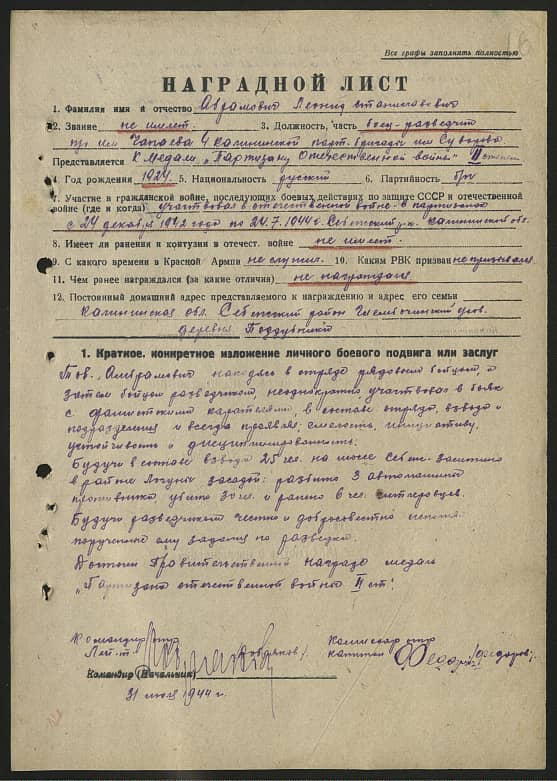 16
Все графы заполнять полностью
НАГРАДНОЙ ЛИСТ
1. Фамилия имя и отчество Аврамович Леонид Станиславович
2. Звание не имеет. 3. Должность, часть боец-разведчик
им Чапаева 4 Калининской парт. бригады им Суворова
Представляется К медали „Партизану Отечественной войны" II степени
4 Год рождения 1924 5. Национальность русский 6. Партийность б/п
7. Участие в гражданской войне, последующих боевых действиях по защите СССР и отечественной
войне (где и когда) участвовал в отечественной войне в партизанах
с 24 декабря 1942 года по 24.7.1944г. Себежский р-н. Калининской обл.
8. Имеет ли ранения и контузии в отечест. войне не имеет.
9. С какого времени в Красной Армии не служил. 10. Каким РВК призван не призывался
11. Чем ранее награждался (за какие отличия) не награждался
12. Постоянный домашний адрес представляемого к награждению и адрес его семьи
Калининская обл. Себежский район Глембочинский
деревня Поддубники
1. Краткое, конкретное изложение личного боевого подвига или заслуг
Тов. Аврамович находясь в отряде рядовым бойцом, а
затем бойцом разведчиком, неоднократно участвовал в боях
с фашистскими карателями, в составе отряда, взвода и
подразделения и всегда проявлял смелость, инициативу,
устойчивость и дисциплинированность.
Будучи в составе взвода 25 чел. на шоссе Себеж-
в районе засадой: разбито 3 автомашины
противника, убито 30 чел. и ранено 6 чел. гитлеровцев.
Будучи разведчиком честно и добросовестно
порученные ему задания по разведке.
Достоин Правительственной награды медаль
„Партизана отечественной войны II ст."
Командир отр Комиссар отр
Лей-т. капитан Федоров /Федоров/
Командир (Начальник)
31 июля 1944 г.